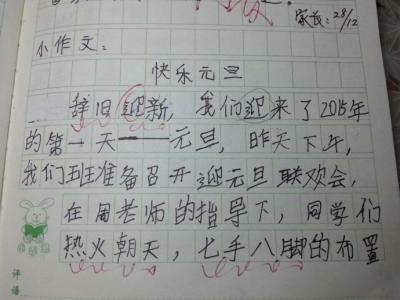 家长：28/12
小作文：
快乐元旦
辞旧迎新，我们迎来了2015年
的第一天——元旦，昨天下午，
我们班准备召开迎元旦联欢会，
在周老师的指导下，同学们
热火朝天，七手八脚的布置
评语